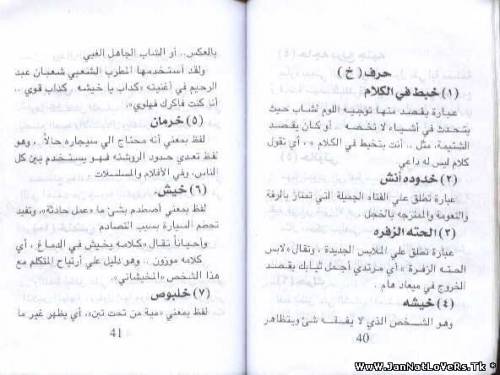 حرف( خ )
(١) خبط في الكلام
عبارة يقصد منها توجيه اللوم لشاب حيث
يتحدث في أشياء لا تخصه .. أو كان يقصد
الشتيمة، مثل .. أنت بتخبط في الكلام » ، أي تقول
كلام ليس له داعي
(٢) خدوده أنش
عبارة تطلق علي الفتاه الجميلة التي تمتاز بالرقة
والنعومة والممتزجه بالخجل .
(٣) الحته الزفره
عبارة تطلق علي الملابس الجديدة ، وتقال «لابس
الحته الزفرة » أي مرتدي اجمل ثيابك بقصد
الخروج في ميعاد هام .
(٤) خيشه
وهو الشخص الذي لا يفقه شئ ويتظاهر
40
بالعكس.. أو الشاب الجاهل الغبي
ولقد أستخدمها المطرب الشعبي شعبان عبد
الرحيم في أغنيته «كداب يا خيشه .. كداب قوي ..
أنا كنت فاكرك فهلوي».
(٥) خرمان
لفظ بمعني أنه محتاج الي سيجاره حالاً.. وهو
لفظ تعدي حدود الروشنه فهو يستخدم بين كل
الناس، وفي الأفلام والمسلسلات
(٦) خيش.
لفظ بمعني أصطدم بشئ ما «عمل حادثة»، وتفيد
تحطم السيارة بسبب التصادم
وأحياناً تقال «كلامه يخيش في الدماغ ، أي
كلامه موزون .. وهو دليل علي أرتياح المتكلم مع
هذا الشخص «المخيشاتي».
(٧) خلبوص
لفظ بمعني «مية من تحت تبن»، أي يظهر غير ما
41
WwW.JanNatLoVeRs.Tk ®